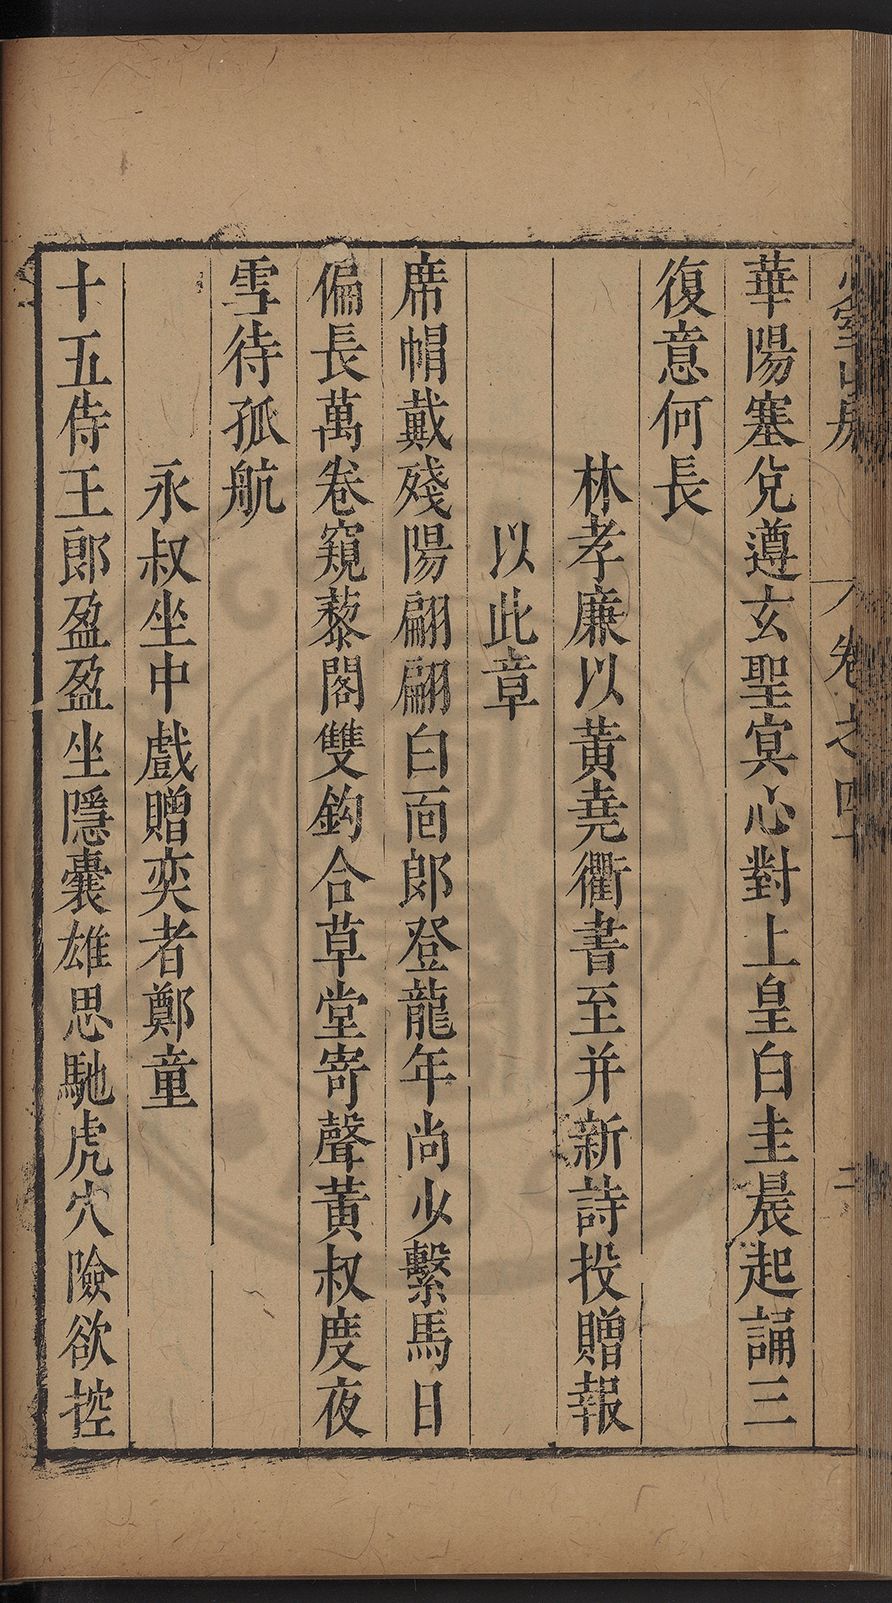 華陽塞兌遵玄聖㝠心對上皇白圭晨起誦三
復意何長
林孝廉以黃堯衢書至并新詩投贈報
以此章
席帽戴殘陽翩翩白面郎登龍年尚少繫馬日
偏長萬卷窺藜閣雙鈎合草堂寄聲黃叔度夜
雪待孤航
永叔坐中戲贈奕者鄭童
十五侍王郎盈盈坐隱囊雄思馳虎穴險欲控
卷之四
二